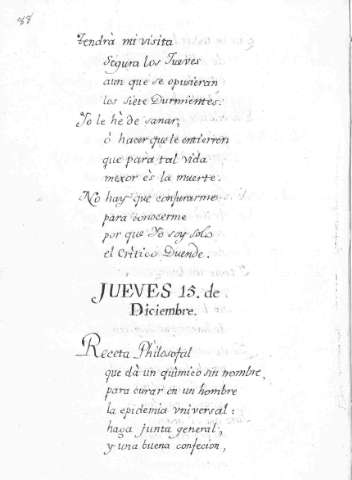 88
tendrà mi visita
Segura los Jueves
aun que se opusieran
los siete Durmientes.
Yo le hè de sanar,
ò hacer que le entierren
que para tal vida
mexor ès la muerte.
No hay que conjurarme
para conocerme
por que Yo soy solo
el Critico Duende.
JUEVES 15. de
Diciembre.
Receta Philosofal
que dà un quimico sin nombre,
para curar en un hombre
la epidemia vniversal:
haga junta general,
y una buena confecion,